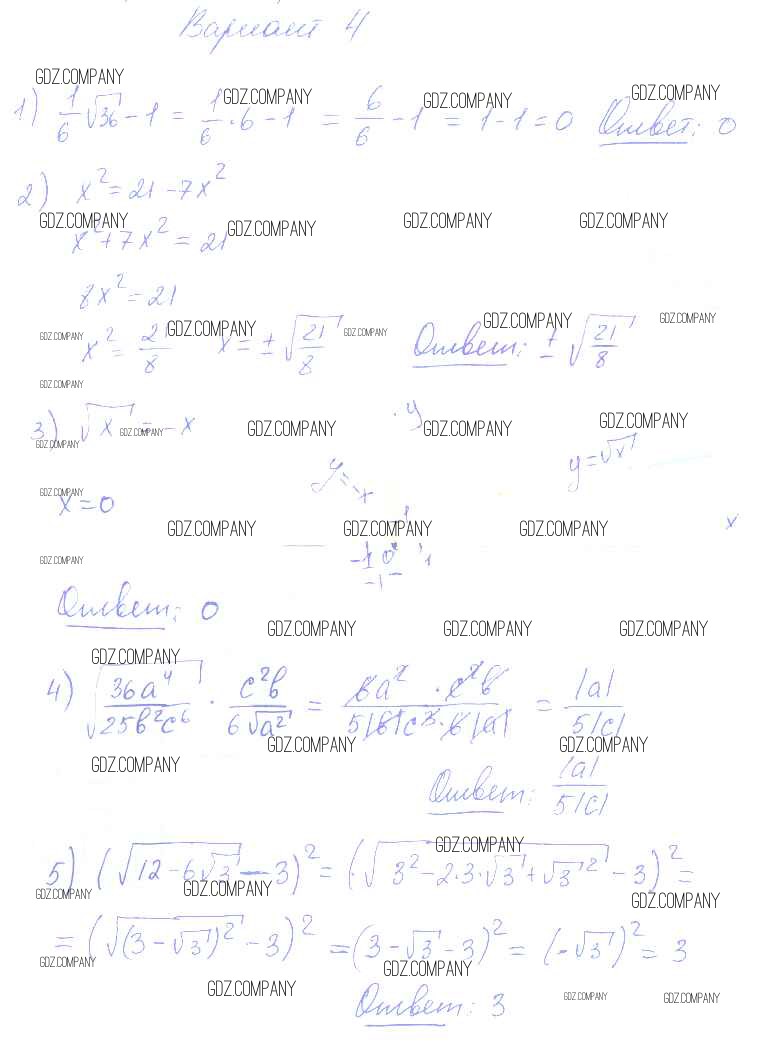 Вариант 4
GDZ.COMPANY
1) 1/6 √36 - 1 = 1/6 · 6 - 1 = 6/6 - 1 = 1 - 1 = 0 Ответ: 0
GDZ.COMPANY GDZ.COMPANY GDZ.COMPANY
2) x² = 21 - 7x²
GDZ.COMPANY GDZ.COMPANY GDZ.COMPANY GDZ.COMPANY
x² + 7x² = 21
8x² = 21
GDZ.COMPANY GDZ.COMPANY GDZ.COMPANY GDZ.COMPANY GDZ.COMPANY
x² = 21/8 x = ± √(21/8) Ответ: ± √(21/8)
GDZ.COMPANY
3) √x = -x y
GDZ.COMPANY GDZ.COMPANY GDZ.COMPANY GDZ.COMPANY
GDZ.COMPANY
y = -x y = √x
GDZ.COMPANY
x = 0
GDZ.COMPANY GDZ.COMPANY GDZ.COMPANY x
1
-1 0 1
-1
GDZ.COMPANY
Ответ: 0
GDZ.COMPANY GDZ.COMPANY GDZ.COMPANY
GDZ.COMPANY
4) √(36a⁴/25b²c⁶) · c²b/6√a² = 6a² · c²b/5|b|c³ · 6|a| = |a|/5|c|
GDZ.COMPANY GDZ.COMPANY
GDZ.COMPANY
Ответ: |a|/5|c|
GDZ.COMPANY
5) (√(12 - 6√3) - 3)² = (√(3² - 2·3·√3 + √3²) - 3)² =
GDZ.COMPANY GDZ.COMPANY GDZ.COMPANY
= (√((3 - √3)²) - 3)² = (3 - √3 - 3)² = (-√3)² = 3
GDZ.COMPANY GDZ.COMPANY
GDZ.COMPANY GDZ.COMPANY GDZ.COMPANY
Ответ: 3